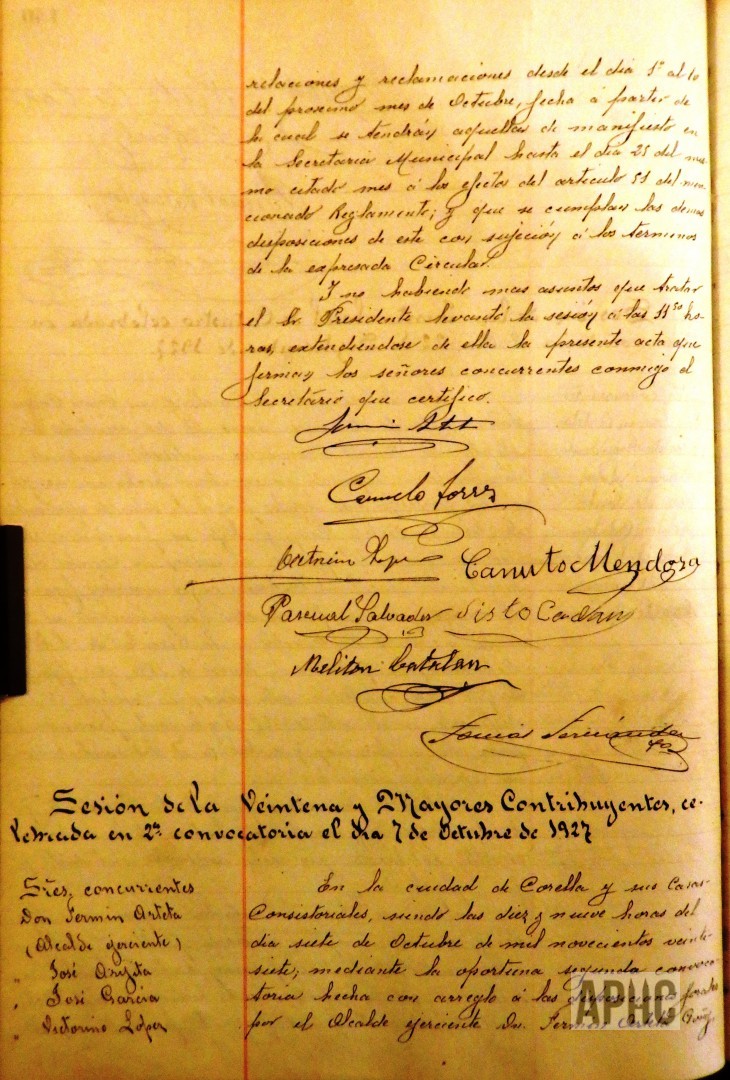 relaciones y reclamaciones desde el dia 1º al 10
del proximo mes de Octubre, fecha á partir de
la cual se tendrán aquellas de manifiesto en
la Secretaria Municipal hasta el dia 25 del mis
mo citado mes á los efectos del articulo 51 del men
cionado Reglamento; y que se cumplan las demas
disposiciones de este con sujeción á los terminos
de la expresada Circular.
Y no habiendo mas asuntos que tratar
el Sr. Presidente levantó la sesión á las 11'30 ho-
ras, extendiendose de ella la presente acta que
firman los señores concurrentes conmigo el
Secretário que certifico.
Carmelo
Canuto Mendoza
Pascual Salvador Sisto
Meliton Catalan
Tomás Fernández
Sesión de la Veintena y Mayores Contribuyentes, ce-
lebrada en 2ª convocatoria el dia 7 de Octubre de 1927
Sres. concurrentes
Don Fermin Arteta
(Alcalde ejerciente)
" José
" José Garcia
" Victorino López
En la ciudad de Corella y sus Casas
Consistoriales, siendo las diez y nueve horas del
dia siete de Octubre de mil novecientos veinti-
siete; mediante la oportuna segunda convoca-
toria hecha con arreglo á las disposiciones forales
por el Alcalde ejerciente Dn. Fermin Arteta
APHC